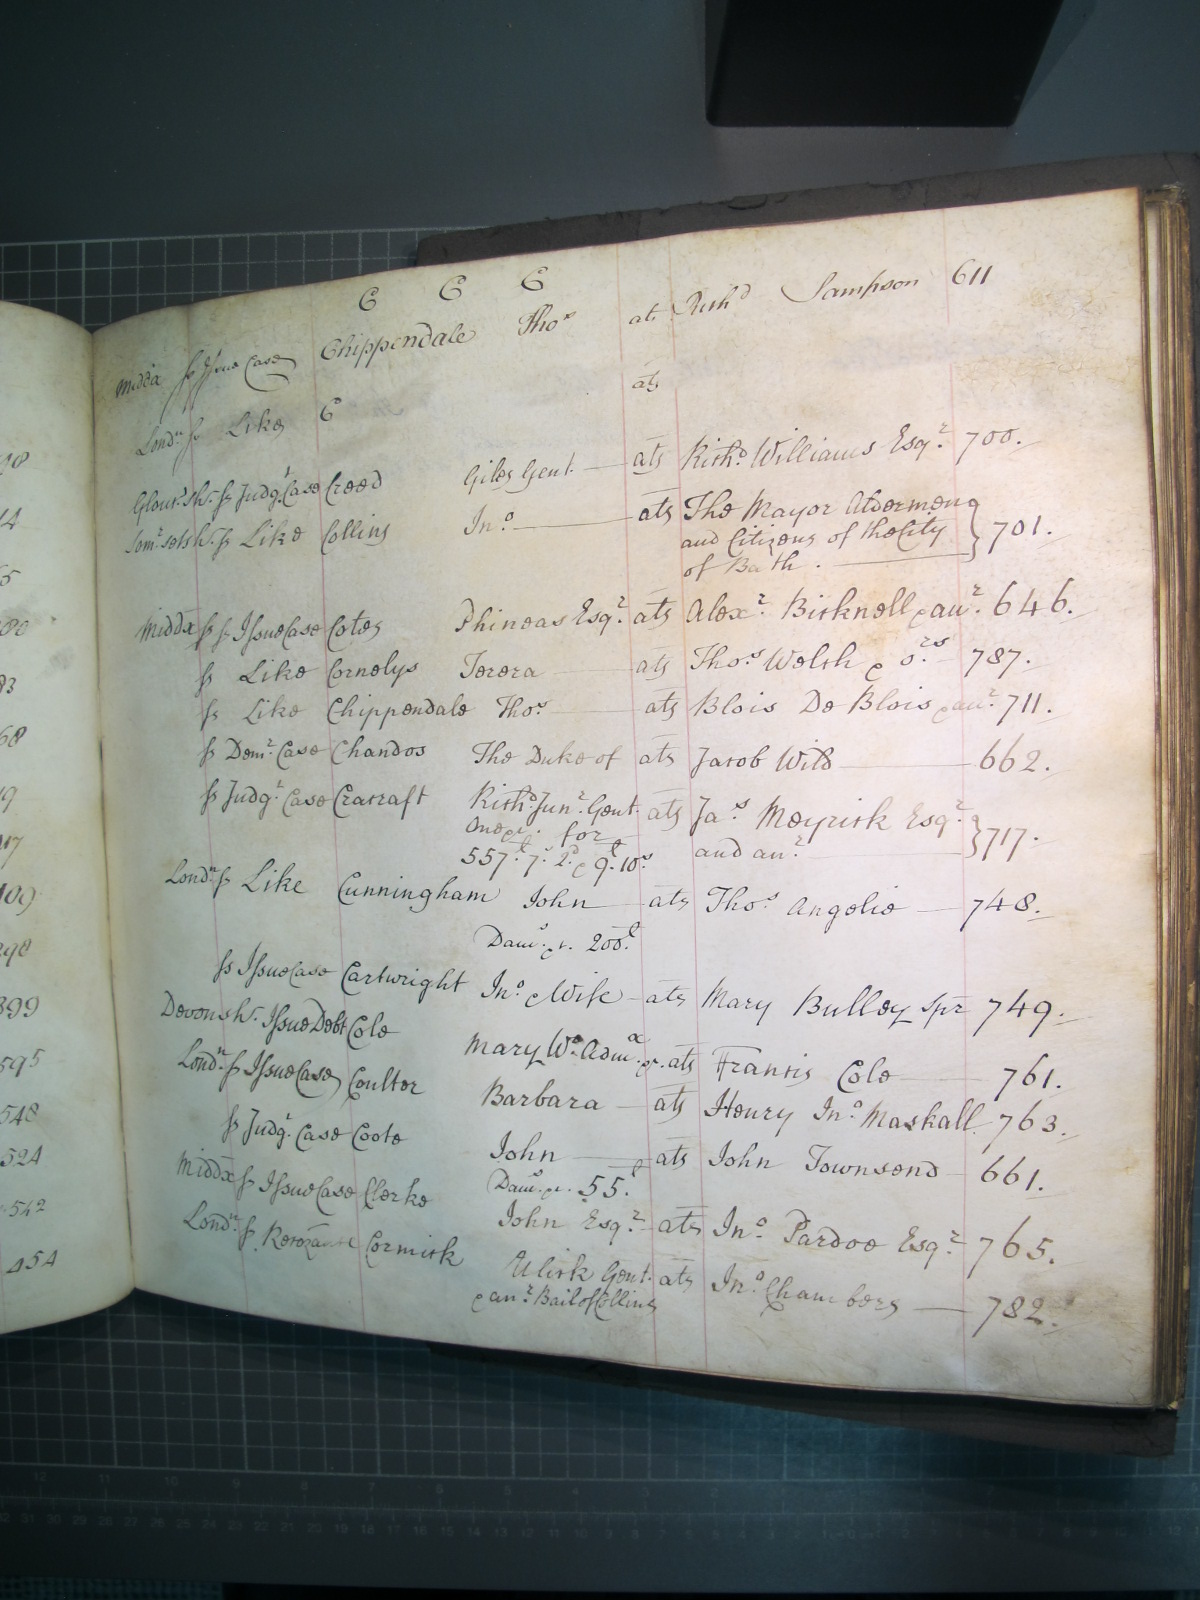 C C C
Midd̄x ſs Iſsue Case Chippendale Thoˢ ats Richᵈ Sampson 611
Londⁿ ſs Like C ats
Glouc.ʳsh.ʳ ſs Judg.ᵗ Case Creed Giles Gent. ats Rich.ᵈ Williams Esq.ʳ 700.
Som.ʳsetsh.ʳ ſs Like Collins Jn.º ats The Mayor Aldermen
and Citizens of the City } 701.
of Bath.
Middx ſs Iſsue Case Cotes Phineas Esq.ʳ ats Alex.ʳ Bicknell & an.ʳ 646.
ſs Like Cornelys Teresa ats Tho.ˢ Welsh & o.ʳˢ 787.
ſs Like Chippendale Tho.ˢ ats Blois De Blois & an.ʳ 711.
ſs Dem.ʳ Case Chandos The Duke of ats Jacob Wild 662.
ſs Judg.ᵗ Case Cracraft Rich.ᵈ Jun.ʳ Gent. ats Ja.ˢ Meyrick Esq.ʳ
for and an.ʳ } 717.
557.ᵗ 7.ˢ 2.ᵈ & 9.ᵗ 10.ˢ
Lond.ⁿ ſs Like Cunningham John ats Tho.ˢ Angelie 748.
Dam.ˢ &c. 200.ᵗ
ſs Iſsue Case Cartwright Jn.º & Wife ats Mary Bulley Spr 749.
Devonsh.ʳ Iſsue Debt Cole Mary W.º Adm.ˣ &c. ats Francis Cole 761.
Lond.ⁿ ſs Iſsue Case Coulter Barbara ats Henry Jn.º Maskall 763.
ſs Judg.ᵗ Case Coote John ats John Townsend 661.
Dam.ˢ &c. 55.ᵗ
Middx ſs Iſsue Case Clerke John Esq.ʳ ats Jn.º Pardoe Esq.ʳ 765.
Lond.ⁿ ſs Recozance Cormick Ulick Gent. ats Jn.º Chambers 782.
& an.ʳ Bail of Collins
548
524
542
454